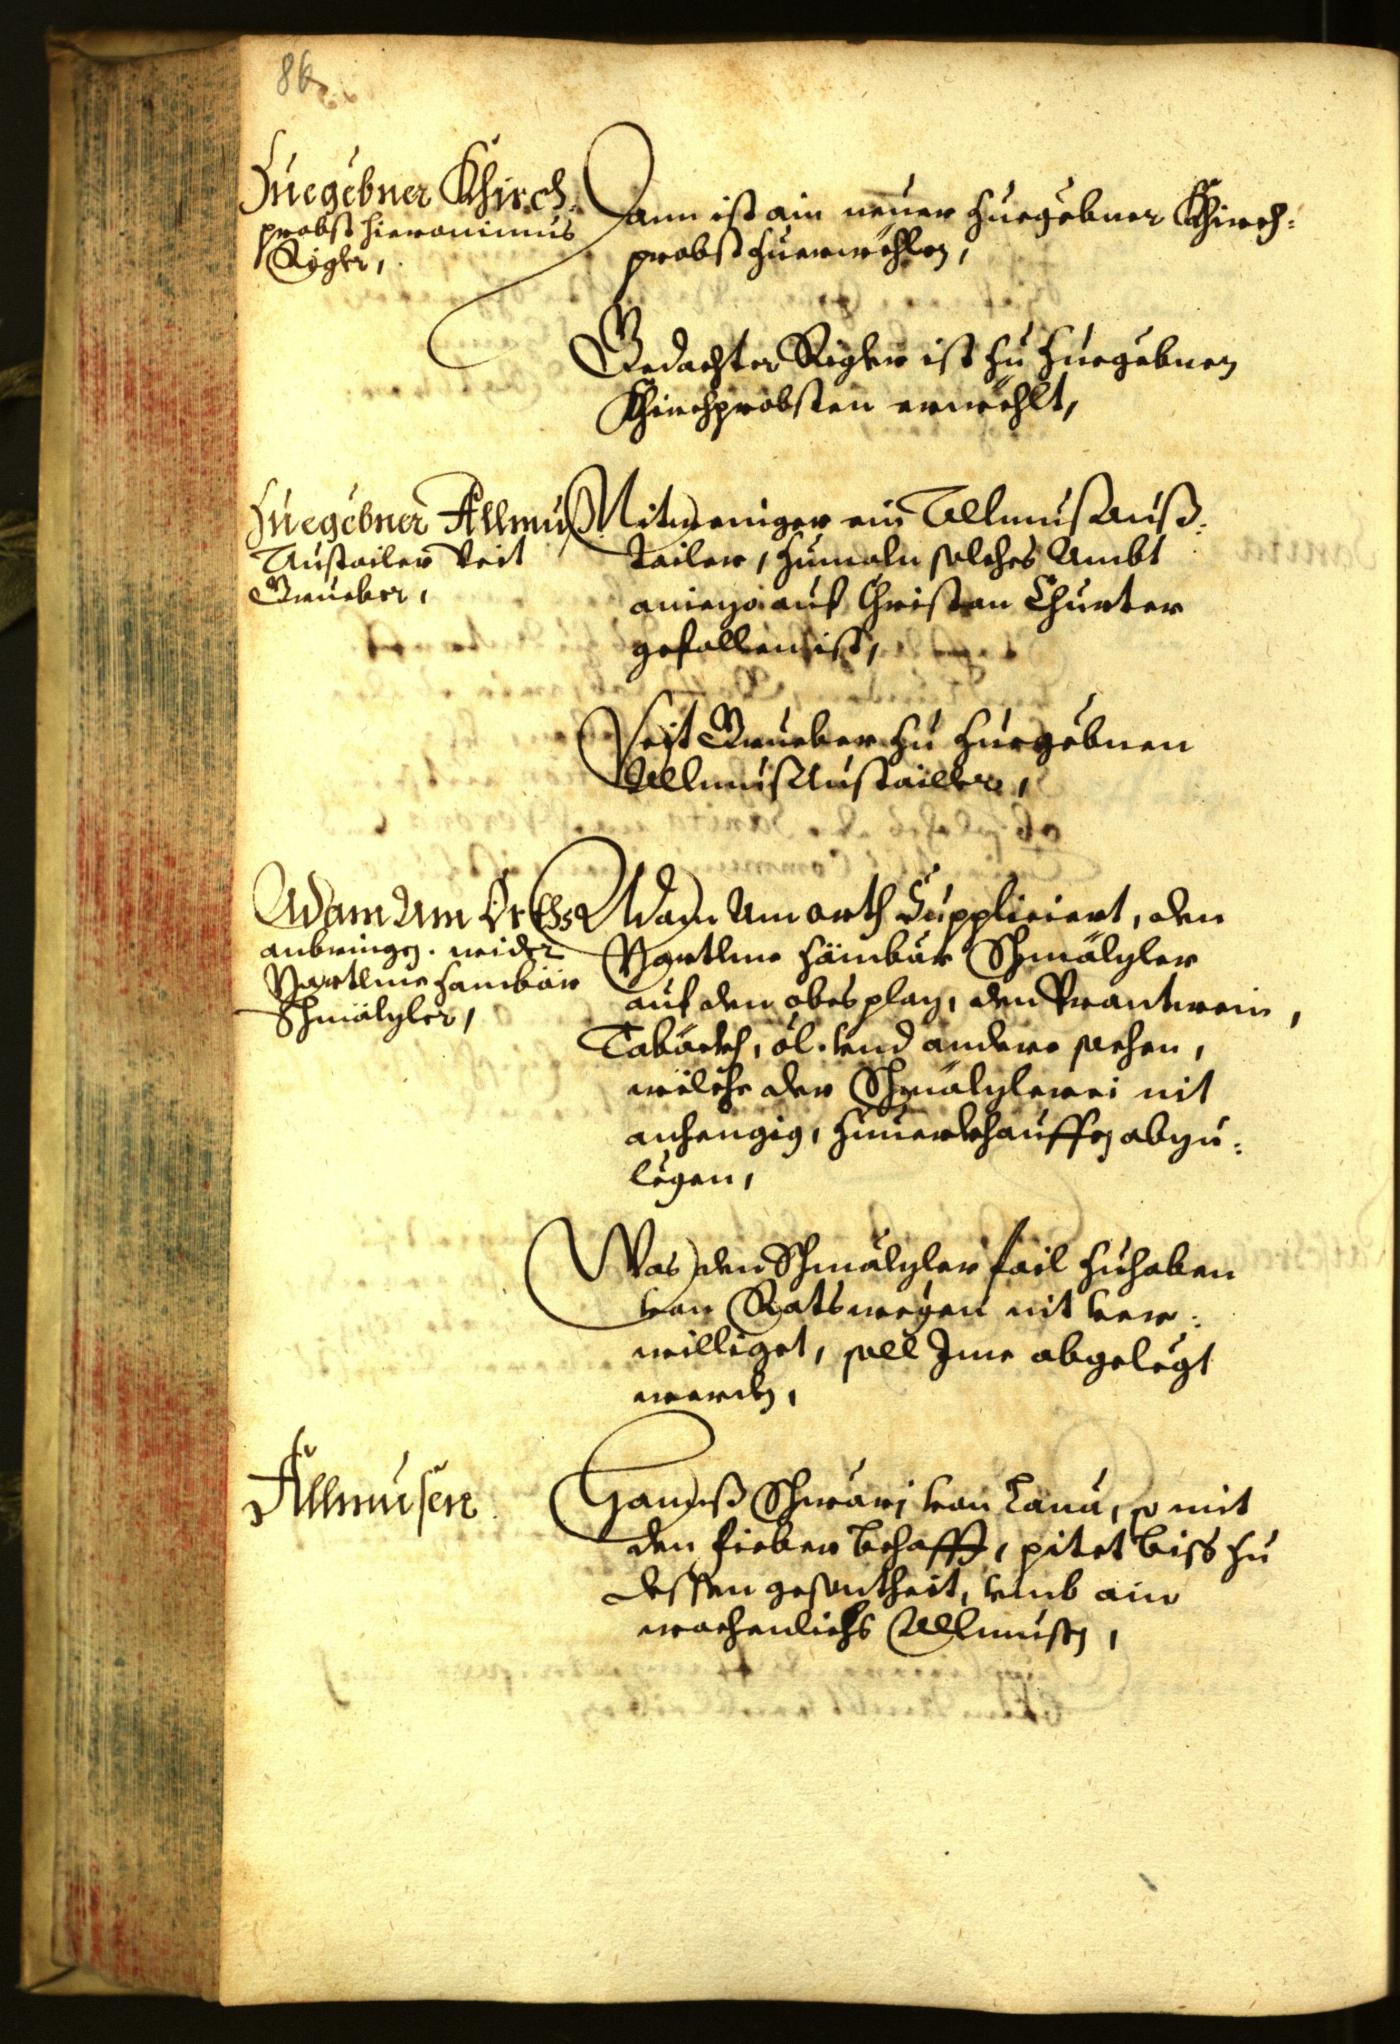 86
Zuegebner Khirch-
probst Hieronimus
Rigler,
Dann ist ain neuer zuegebner Khirch-
probst zuerwöhlen,
Gedachter Rigler ist zu zuegebnen
Khirchprobsten erwöhlt,
Zuegebner Allmus
Austailer Veit
Grueber,
Nitweniger ein Allmusauß-
tailer, zumaln solches Ambt
aniezo auf Christan Churter
gefallen ist,
Veit Grueber zu zuegebnen
Allmusaustailler,
Adam Am Orth
anbringen wider
Bartlme Hambär
Schmälzler,
Adam Am orth Supplieiert, den
Bartlme Hämbär Schmälzler
auf den obesplaz, den Brantwein,
Taback, öl vnd andere sachen,
wölche der Schmälzlerei nit
anhengig, zuuerkhauffen abzu-
legen,
Was den Schmälzler fail zuhaben
von Ratswegen nit ver-
williget, soll Ime abgelegt
werden,
Allmusen
Hannß Schwarz von Lana, so mit
den fieber behafft, pitet biss zu
dessen gesontheit, vmb ain
wochenlichs Allmusen,